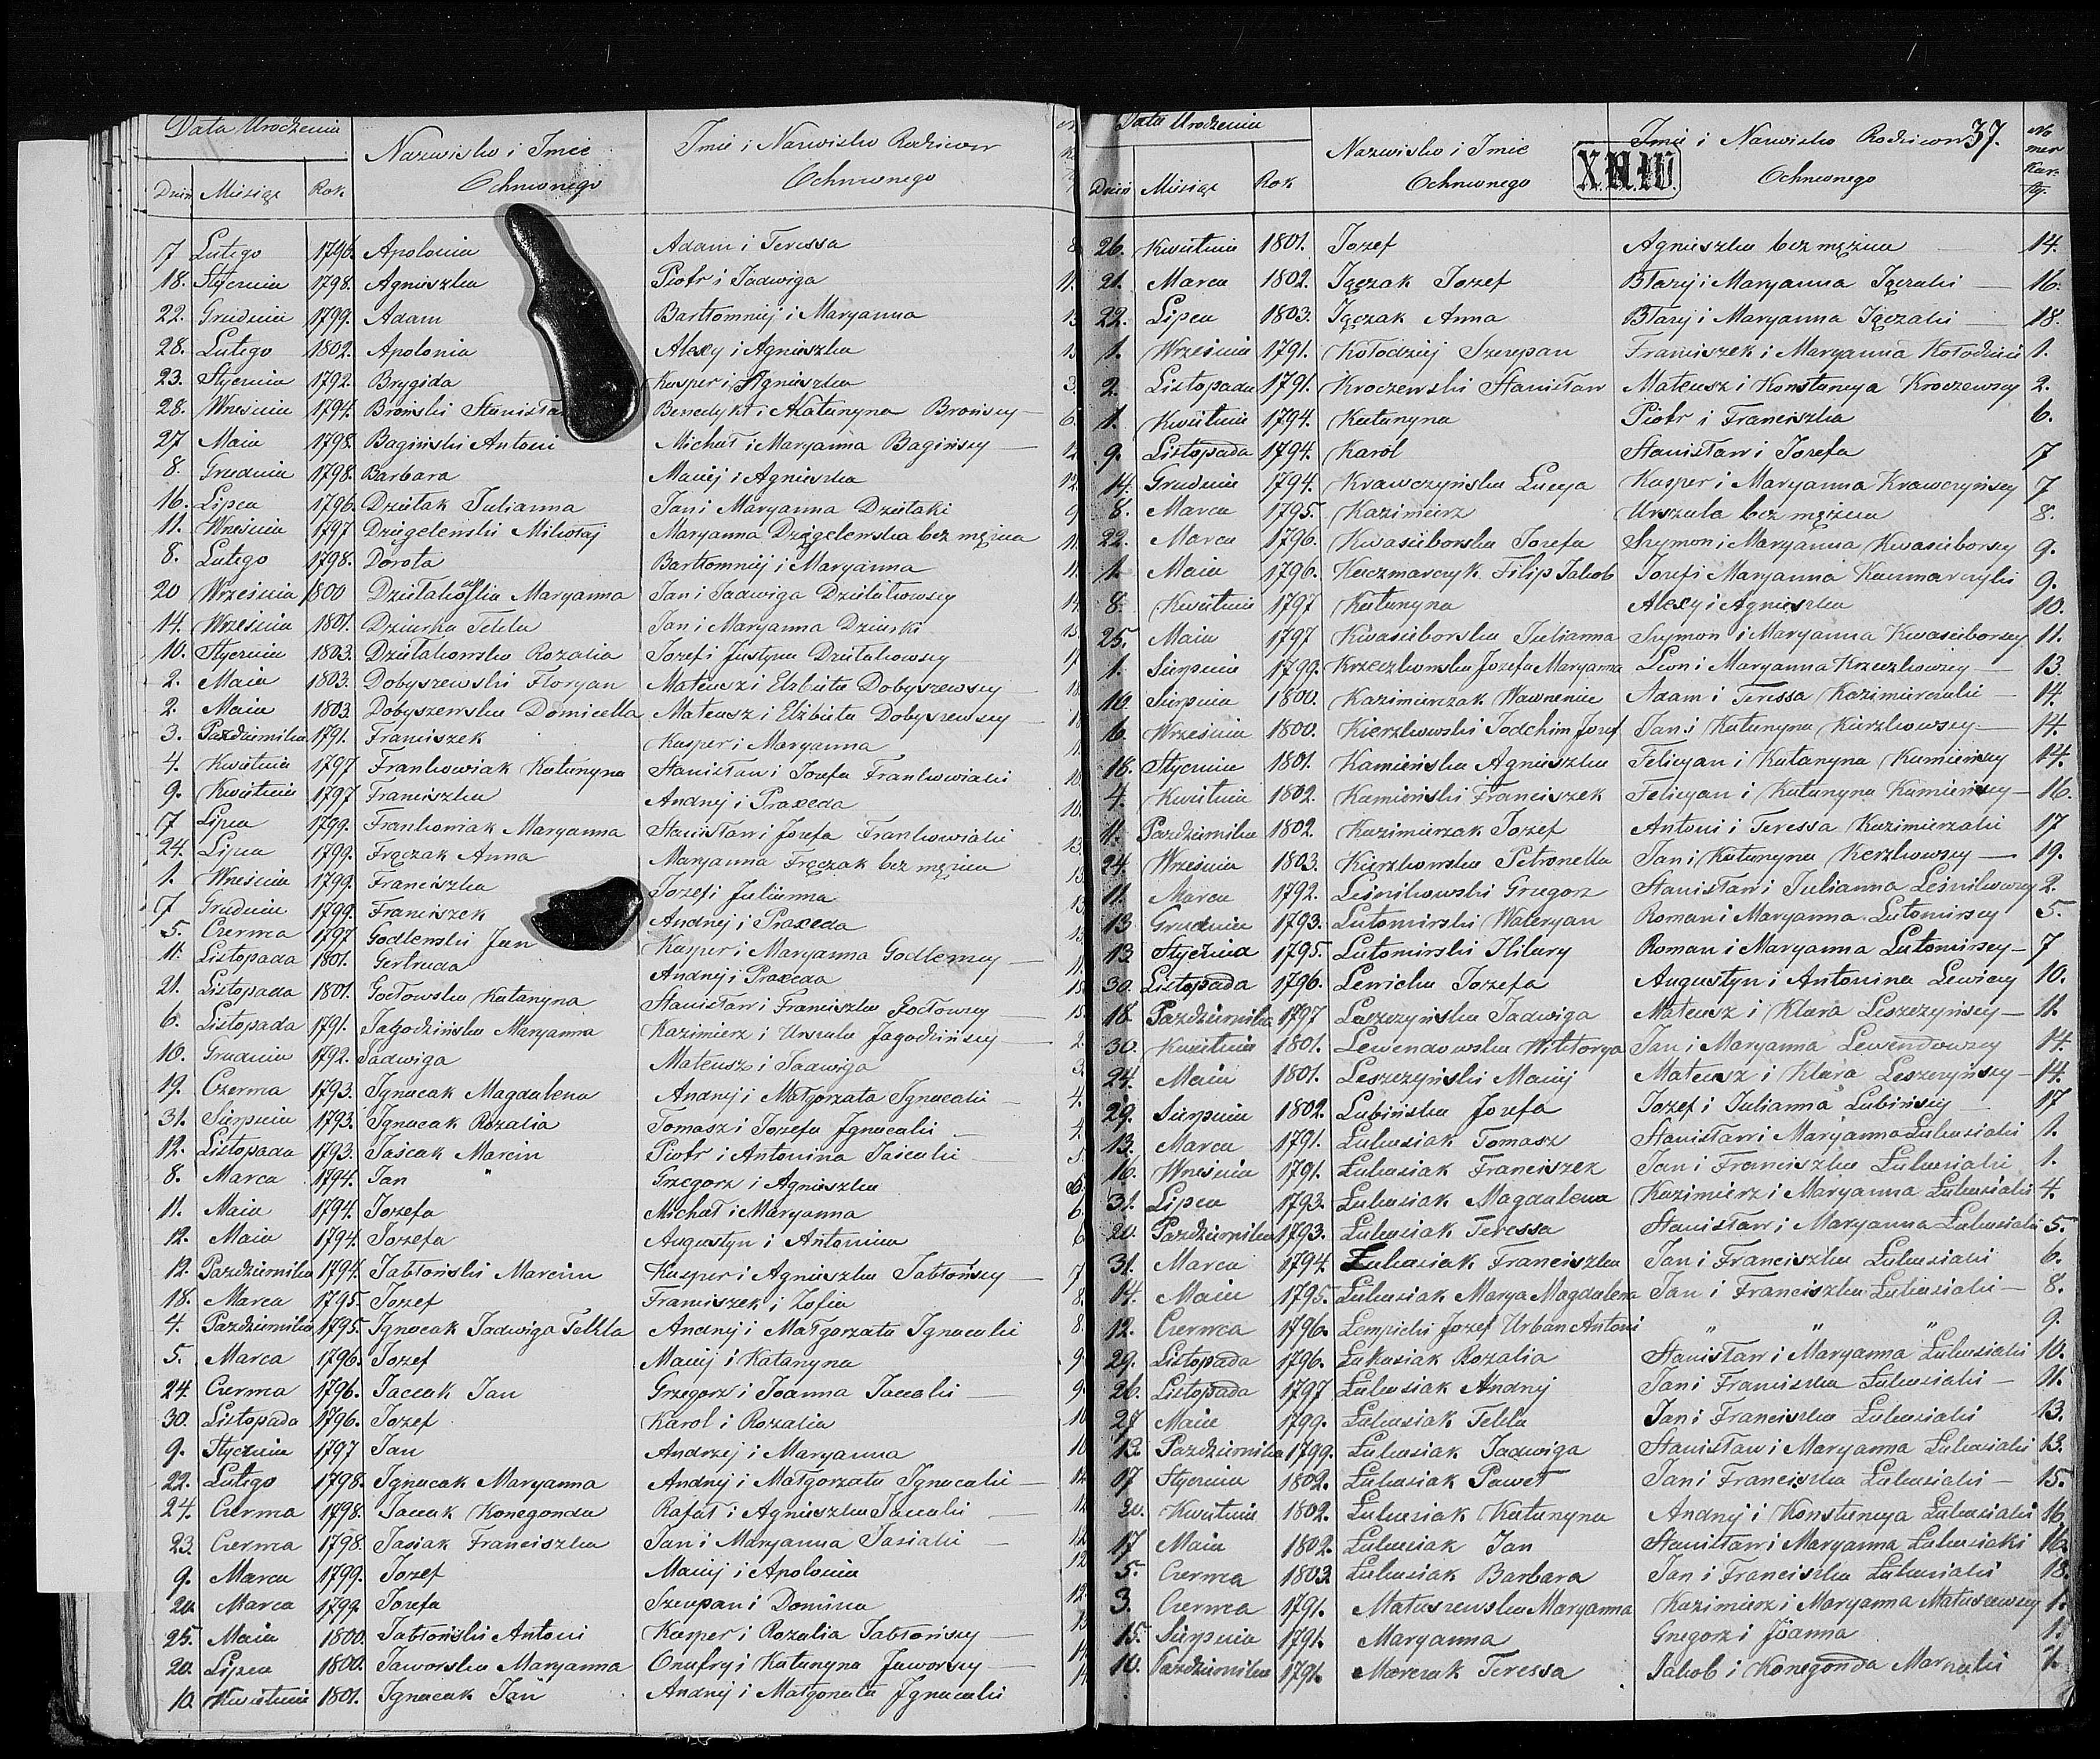 Data Urodzenia
Nazwisko i Imie Ochrzconego
Imie i Nazwisko Rodzicow Ochrzconego
Dzień Miesiąc Rok
7 Lutego 1796. Apolonia Adam i Teressa
18. Stycznia 1798. Agnieszka Piotr i Jadwiga
22. Grudnia 1799. Adam Bartłomiej i Maryanna
28. Lutego 1802. Apolonia Alexy i Agnieszka
23. Stycznia 1792. Brygida Kasper i Agnieszka
28. Września 1794. Broński Benedykt i Katarzyna Brońscy
27 Maia 1798. Bagiński Antoni Michał i Maryanna Bagińscy
8. Grudnia 1798. Barbara Maciej i Agnieszka
16. Lipca 1796. Dziełak Julianna Jan i Maryanna Dziełaki
11. Września 1797 Dzięgelewski Mikołaj Maryanna Dzięgelewska bez mężna
8. Lutego 1798. Dorota Bartłomiej i Maryanna
20 Września 1800 Maryanna Jan i Jadwiga Dziełakowscy
14. Września 1801. Dziurka Tekla Jan i Maryanna Dziurki
10. Stycznia 1803. Dziełakowska Rozalia Jozef i Justyna Dziełakowscy
2. Maia 1803. Dobyszewski Floryan Mateusz i Elzbieta Dobyszewscy
2. Maia 1803. Dobyszewska Domicella Mateusz i Elżbieta Dobyszewscy
3. Października 1791. Franciszek Kasper i Maryanna
4. Kwietnia 1797 Frankowiak Katarzyna Stanisław i Jozefa Frankowiaki
9. Kwietnia 1797 Franciszka Andrzej i Praxeda
7 Lipca 1799. Frankowiak Maryanna Stanisław i Jozefa Frankowiaki
24. Lipca 1799. Frączak Anna Maryanna Frączak bez mężna
1. Września 1799. Franciszka Jozef i Julianna
7 Grudnia 1799. Franciszek Andrzej i Praxeda
5. Czerwca 1797 Godlewski Jan Kasper i Maryanna Godlewscy
11. Listopada 1801. Gertruda Andrzej i Praxeda
21. Listopada 1801. Gołowska Katarzyna Stanisław i Franciszka Gołowscy
6. Listopada 1791. Jagodzińska Maryanna Kazimierz i Urszula Jagodzińscy
10. Grudnia 1792. Jadwiga Mateusz i Jadwiga
19. Czerwca 1793. Ignacak Magdalena Andrzej i Małgorzata Ignacaki
31. Sierpnia 1793. Ignacak Rozalia Tomasz i Jozefa Ignacaki
12. Listopada 1793. Jaścak Marcin Piotr i Antonina Jaścaki
8. Marca 1794. Jan " Grzegorz i Agnieszka
11. Maia 1794. Jozefa Michał i Maryanna
12. Maia 1794. Jozefa Augustyn i Antonina
12. Października 1794. Jabłoński Marcin Kasper i Agnieszka Jabłońscy
18. Marca 1795. Jozef Franciszek i Zofia
4. Października 1795. Ignacak Jadwiga Tekla Andrzej i Małgorzata Ignacaki
5. Marca 1796. Jozef Maciej i Katarzyna
24. Czerwca 1796. Jaccak Jan Grzegorz i Joanna Jaccaki
30. Listopada 1796. Jozef Karol i Rozalia
9. Stycznia 1797 Jan Andrzej i Maryanna
22. Lutego 1798. Ignacak Maryanna Andrzej i Małgorzata Ignacaki
24. Czerwca 1798. Jaccak Konegonda Rafał i Agnieszka Jaccaki
23. Czerwca 1798. Jasiak Franciszka Jan i Maryanna Jasiaki
9. Marca 1799. Jozef Maciej i Apolonia
20. Marca 1799. Jozefa Szczepan i Domina
25. Maia 1800. Jabłoński Antoni Kasper i Rozalia Jabłońscy
20. Lipca 1800. Jaworska Maryanna Onufry i Katarzyna Jaworscy
10. Kwietnia 1801. Ignacak Jan Andrzej i Małgorzata Ignacaki
Data Urodzenia
Nazwisko i Imie Ochrzconego
Imie i Nazwisko Rodzicow Ochrzconego
37.
Nomer Karty.
Dzień Miesiąc Rok
26. Kwietnia 1801. Jozef Agnieszka bez mężna 14.
21. Marca 1802. Jączak Jozef Błazy i Maryanna Jączaki 16.
22. Lipca 1803. Jączak Anna Błazy i Maryanna Jączaki 18.
1. Września 1791. Kołodziej Szczepan Franciszek i Maryanna Kołodzieje 1.
2. Listopada 1791. Kroczewski Stanisław Mateusz i Konstancya Kroczewscy 2.
1. Kwietnia 1794. Katarzyna Piotr i Franciszka 6.
9. Listopada 1794. Karol Stanisław i Jozefa 7
14. Grudnia 1794. Krawczyńska Lucya Kasper i Maryanna Krawczyńscy 7
8. Marca 1795. Kazimierz Urszula bez mężna 8.
22. Marca 1796. Kwasieborska Jozefa Szymon i Maryanna Kwasieborscy 9.
1. Maia 1796. Kaczmarczyk Filip Jakob Jozef i Maryanna Kaczmarczyki 9.
8. Kwietnia 1797 Katarzyna Alexy i Agnieszka 10.
25. Maia 1797 Kwasieborska Julianna Szymon i Maryanna Kwasieborscy 11.
1. Sierpnia 1799. Krzeczkowska Jozefa Maryanna Leon i Maryanna Krzeczkowscy 13.
10. Sierpnia 1800. Kazimierczak Wawrzeniec Adam i Teressa Kazimierczaki 14.
6. Września 1800. Kierzkowski Joachim Jozef Jan i Katarzyna Kierzkowscy 14.
18. Stycznia 1801. Kamieńska Agnieszka Felicyan i Katarzyna Kamieńscy 14.
4. Kwietnia 1802. Kamieński Franciszek Felicyan i Katarzyna Kamieńscy 16.
11. Października 1802. Kazimierzak Jozef Antoni i Teressa Kazimierzaki 17
24. Września 1803. Kierzkowska Petronella Jan i Katarzyna Kerzkowscy 19.
11. Marca 1792. Leśnikowski Grzegorz Stanisław i Julianna Leśnikowscy 2.
13 Grudnia 1793. Lutomirski Waleryan Roman i Maryanna Lutomirscy 5.
13 Stycznia 1795. Lutomirski Hilary Roman i Maryanna Lutomirscy 7
30. Listopada 1796. Lewicka Jozefa Augustyn i Antonina Lewiccy 10.
18. Października 1797 Leszczyńska Jadwiga Mateusz i Klara Leszczyńscy 11.
30. Kwietnia 1801. Lewendowska Wiktorya Jan i Maryanna Lewendowscy 14.
24. Maia 1801. Leszczyński Maciej Mateusz i Klara Leszczyńscy 14.
29. Sierpnia 1802. Lubińska Jozefa Jozef i Julianna Lubińscy 17
13. Marca 1791. Łukasiak Tomasz Stanisław i Maryanna Łukasiaki 1.
16. Września 1791. Łukasiak Franciszek Jan i Franciszka Łukasiaki 1.
31. Lipca 1793. Łukasiak Magdalena Kazimierz i Maryanna Łukasiaki 4.
20. Października 1793. Łukasiak Teressa Stanisław i Maryanna Łukasiaki 5.
31. Marca 1794 Łukasiak Franciszka Jan i Franciszka Łukasiaki 6.
14. Maia 1795. Łukasiak Marya Magdalena Jan i Franciszka Łukasiaki 8.
12. Czerwca 1796. Łempicki Jozef Urban Antoni " " " 9.
29. Listopada 1796. Łukasiak Rozalia Stanisław i Maryanna Łukasiaki 10.
26. Listopada 1797 Łukasiak Andrzej Jan i Franciszka Łukasiaki 11.
27 Maia 1799. Łukasiak Tekla Jan i Franciszka Łukasiaki 13.
12. Października 1799. Łukasiak Jadwiga Stanisław i Maryanna Łukasiaki 13.
17 Stycznia 1802. Łukasiak Paweł Jan i Franciszka Łukasiaki 15.
20. Kwietnia 1802. Łukasiak Katarzyna Andrzej i Konstancya Łukasiaki 16.
17 Maia 1802. Łukasiak Jan Stanisław i Maryanna Łukasiaki 16.
5. Czerwca 1803. Łukasiak Barbara Jan i Franciszka Łukasiaki 18.
3. Czerwca 1791. Matuszewska Maryanna Kazimierz i Maryanna Matuszewscy 1.
15. Sierpnia 1791. Maryanna Grzegorz i Joanna 1.
10. Października 1791. Marczak Teressa Jakob i Konegonda Marczaki